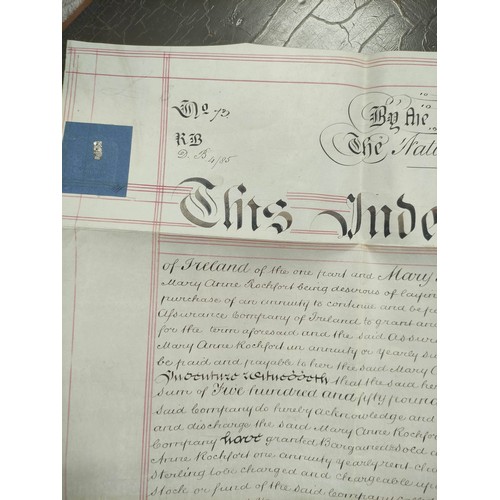 No 73
By the
RB
The Nati
D. B 4/85
This Inde
of Ireland of the one part and Mary
Mary Anne Rochfort being desirous of layin
purchase of an annuity to continue and be pa
Assurance Company of Ireland to grant an
for the term aforesaid and the said Assur
Mary Anne Rochfort an annuity or yearly su
be paid and payable to her the said Mary
Indenture Witnesseth that the said he
sum of Five hundred and fifty pound
said Company do hereby acknowledge and
and discharge the said Mary Anne Rochfor
Company have granted Bargained Sold a
Anne Rochfort one annuity yearly rent cha
Sterling to be charged and chargeable up
Stock or fund of the said Company